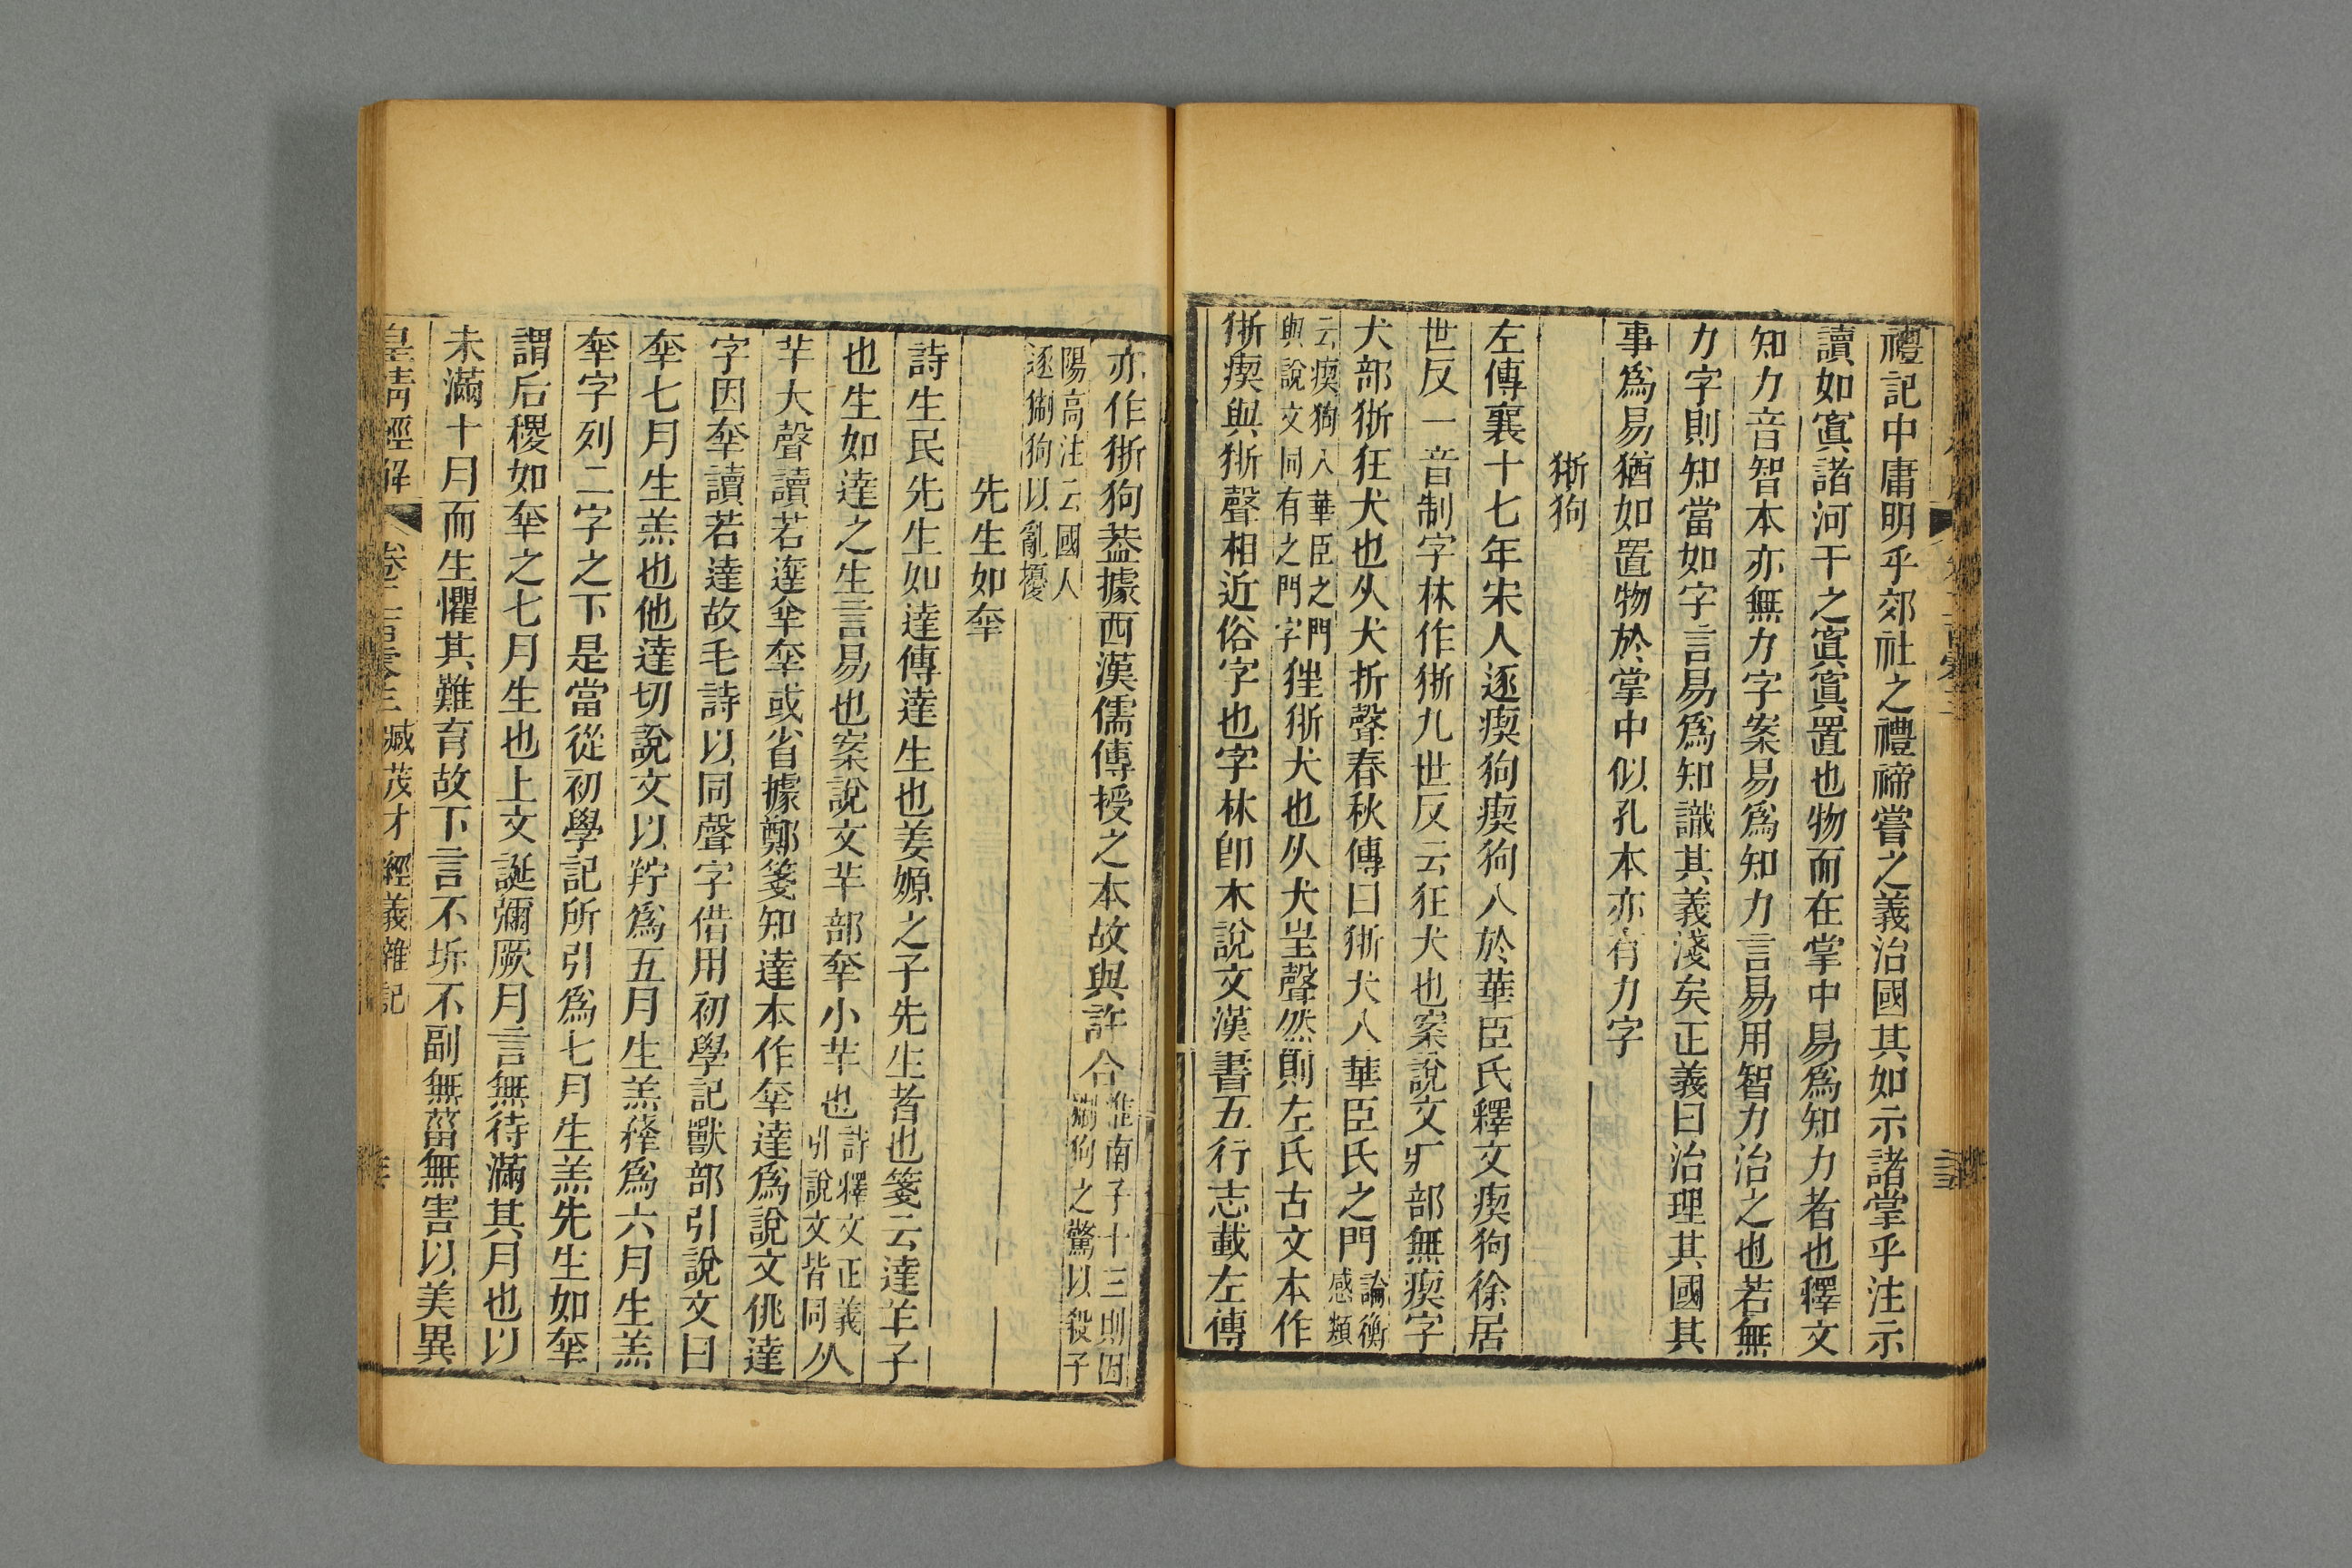 禮記中庸明乎郊社之禮禘嘗之義治國其如示諸掌乎注示
讀如寘諸河干之寘寘置也物而在掌中易為知力者也釋文
知力音智本亦無力字案易為知力言易用智力治之也若無
力字則知當如字言易為知識其義淺矣正義曰治理其國其
事為易猶如置物於掌中似孔本亦有力字
狾狗
左傳襄十七年宋人逐瘈狗瘈狗入於華臣氏釋文瘈狗徐居
世反一音制字林作狾九世反云狂犬也案說文疒部無瘈字
犬部狾狂犬也从犬折聲春秋傳曰狾犬入華臣氏之門論衡感類
云瘈狗入華臣之門與說文同有之門字狂狾犬也从犬㞷聲然則左氏古文本作
狾瘈與狾聲相近俗字也字林卽本說文漢書五行志載左傳
亦作狾狗葢據西漢儒傳授之本故與許合淮南子十三則因猘狗之驚以殺子
陽高注云國人逐猘狗以亂擾
先生如羍
詩生民先生如達傳達生也姜嫄之子先生者也箋云達羊子
也生如達之生言易也案說文羊部羍小羊也詩釋文正義引說文皆同从
羊大聲讀若達羍羍或省據鄭箋知達本作羍達為說文佻達
字因羍讀若達故毛詩以同聲字借用初學記獸部引說文曰
羍七月生羔也他達切說文以羜為五月生羔䍮為六月生羔
羍字列二字之下是當從初學記所引為七月生羔先生如羍
謂后稷如羍之七月生也上文誕彌厥月言無待滿其月也以
未滿十月而生懼其難育故下言不坼不副無菑無害以美異
皇清經解 卷二百零三 臧茂才經義雜記